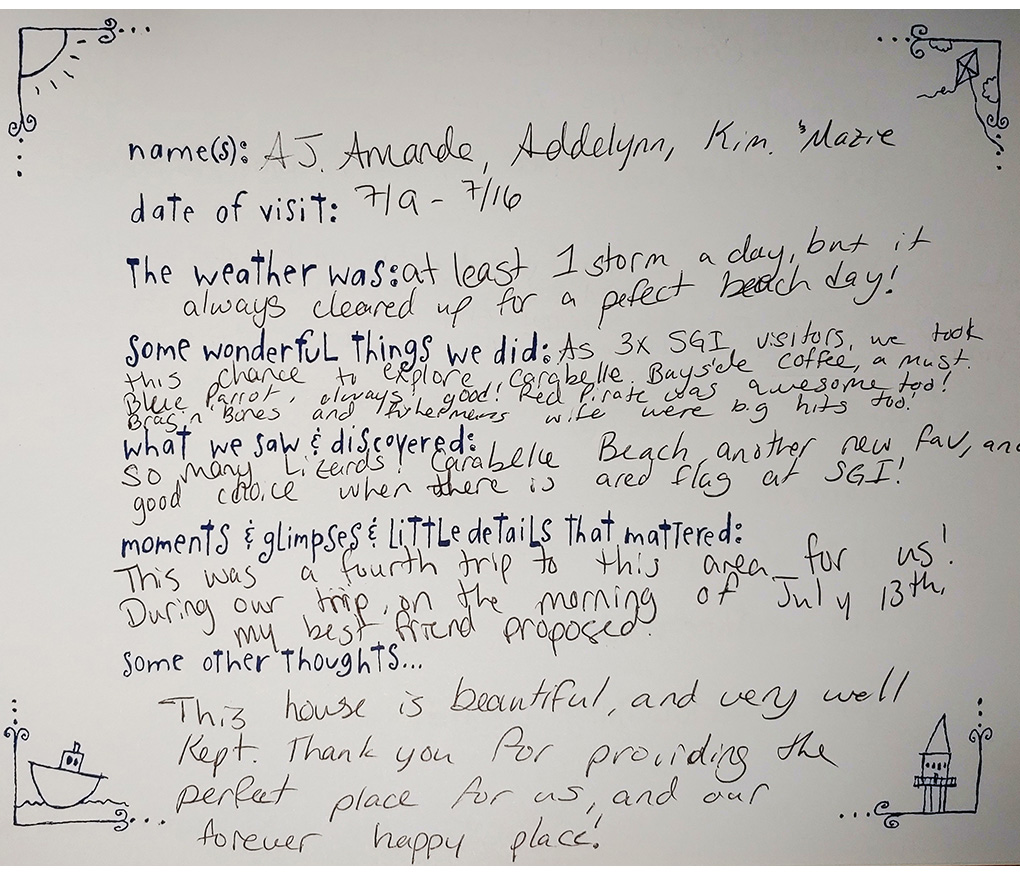 name(s): AJ. Amanda, Addelynn, Kim. & Mazie
date of visit: 7/9 - 7/16
The weather was: at least 1 storm a day, but it
always cleared up for a pefect beach day!
some wonderful things we did: As 3x SGI visitors, we took
this chance to explore Carabelle. Bayside Coffee, a must.
Blue Parrot, always good! Red Pirate was awesome too!
Bras n' Bones and fishermens wife were big hits too!
what we saw & discovered:
So many Lizards! Carabelle Beach another new fav, and
good choice when there is a red flag at SGI!
moments & glimpses & little details that mattered:
This was a fourth trip to this area for us!
During our trip, on the morning of July 13th,
my best friend proposed.
some other thoughts...
This house is beautiful, and very well
Kept. Thank you for providing the
perfect place for us, and our
forever happy place!